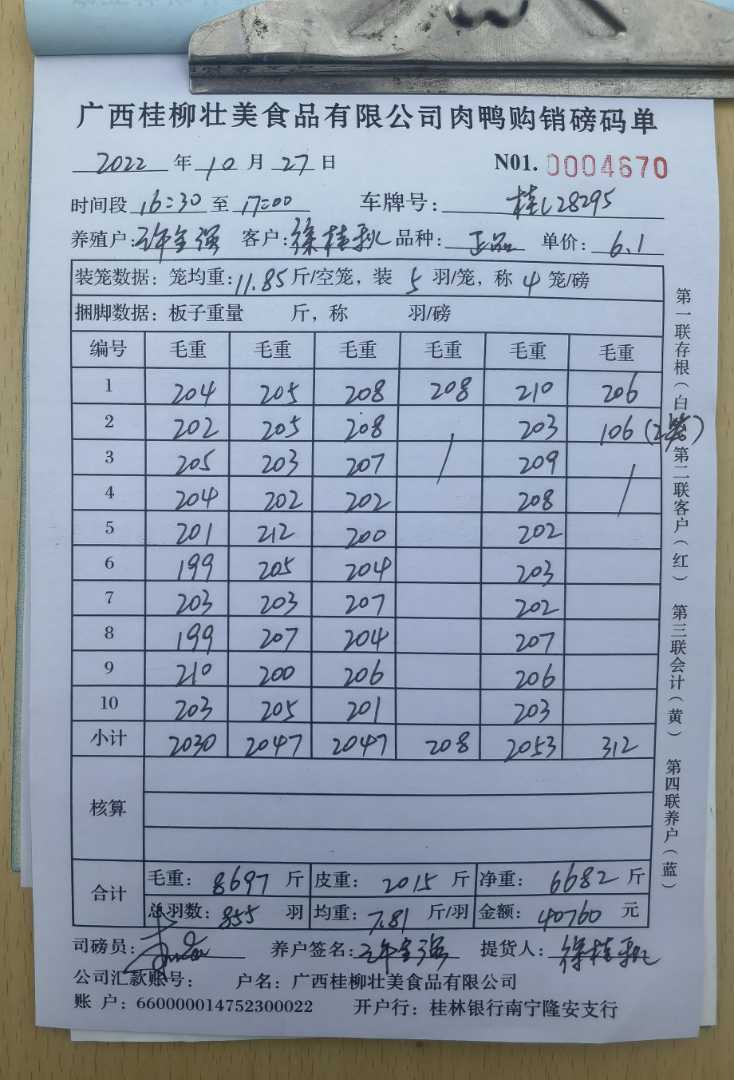 广西桂柳壮美食品有限公司肉鸭购销磅码单
2022 年 10 月 27 日 N01. 0004670
时间段 16:30 至 17:00 车牌号: 桂L28295
养殖户: 许全强 客户: 徐桂 品种: 正品 单价: 6.1
装笼数据: 笼均重: 11.85 斤/空笼, 装 5 羽/笼, 称 4 笼/磅
捆脚数据: 板子重量 斤, 称 羽/磅
编号 毛重 毛重 毛重 毛重 毛重 毛重
1 204 205 208 208 210 206
2 202 205 208 203 106 (2笼)
3 205 203 207 / 209 /
4 204 202 202 208
5 201 212 200 202
6 199 205 204 203
7 203 203 207 202
8 199 207 204 207
9 210 200 206 206
10 203 205 201 203
小计 2030 2047 2047 208 2053 312
核算
合计 毛重: 8697 斤 皮重: 2015 斤 净重: 6682 斤
总羽数: 855 羽 均重: 7.81 斤/羽 金额: 40760 元
司磅员: 养户签名: 许全强 提货人: 徐桂
公司汇款账号: 户名: 广西桂柳壮美食品有限公司
账 户: 660000014752300022 开户行: 桂林银行南宁隆安支行
第一联存根(白) 第二联客户(红) 第三联会计(黄) 第四联养户(蓝)